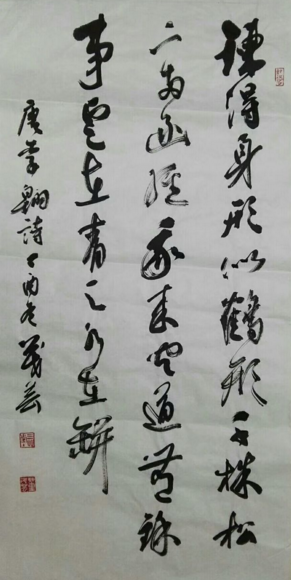 練得身形似鶴形千株松
下兩函經我來問道無餘
事雲在青天水在缾
唐李翱詩丁酉冬